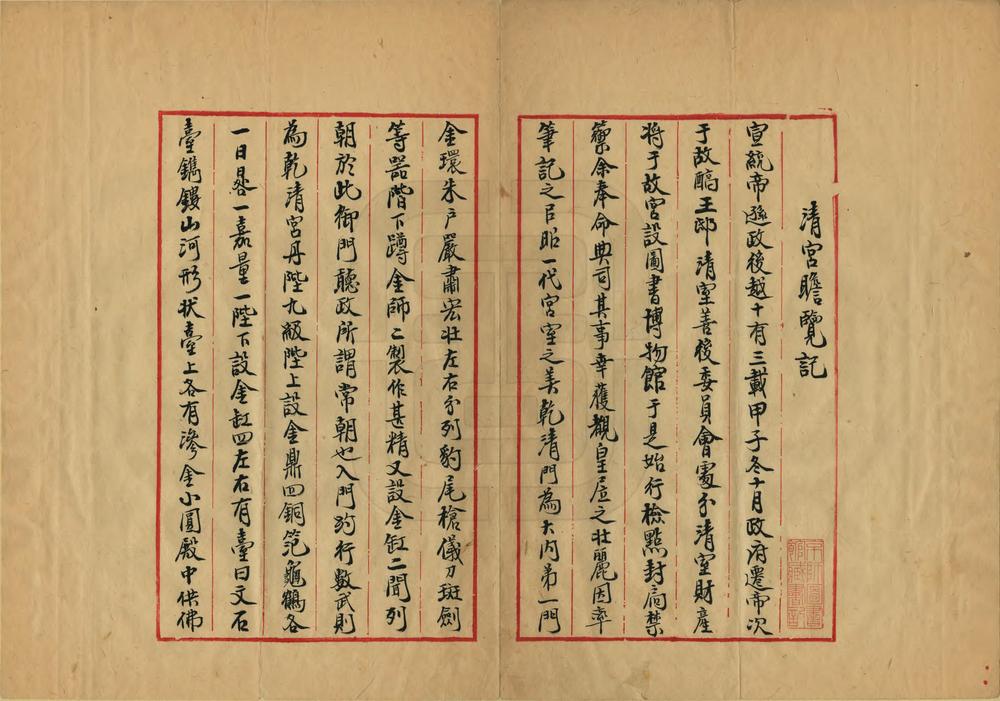 清宮瞻覽記
宣統帝遜政後越十有三載甲子冬十月政府遷帝次
于故醕王邸清室善後委員會處分清室財產
將于故宮設圖書博物館于是始行檢點封扃禁
籞余奉命典司其事幸獲觀皇居之壯麗因率
筆記之㠯昭一代宮室之美乾清門為大內弟一門
金環朱戶嚴肅宏壯左右分列豹尾槍儀刀斑劍
等器階下蹲金師二製作甚精又設金缸二聞列
朝於此御門聽政所謂常朝也入門約行數武則
為乾清宮丹陛九級陛上設金鼎四銅范龜鶴各
一日晷一嘉量一陛下設金缸四左右有臺曰文石
臺鐫鏤山河形狀臺上各有滲金小圓殿中供佛